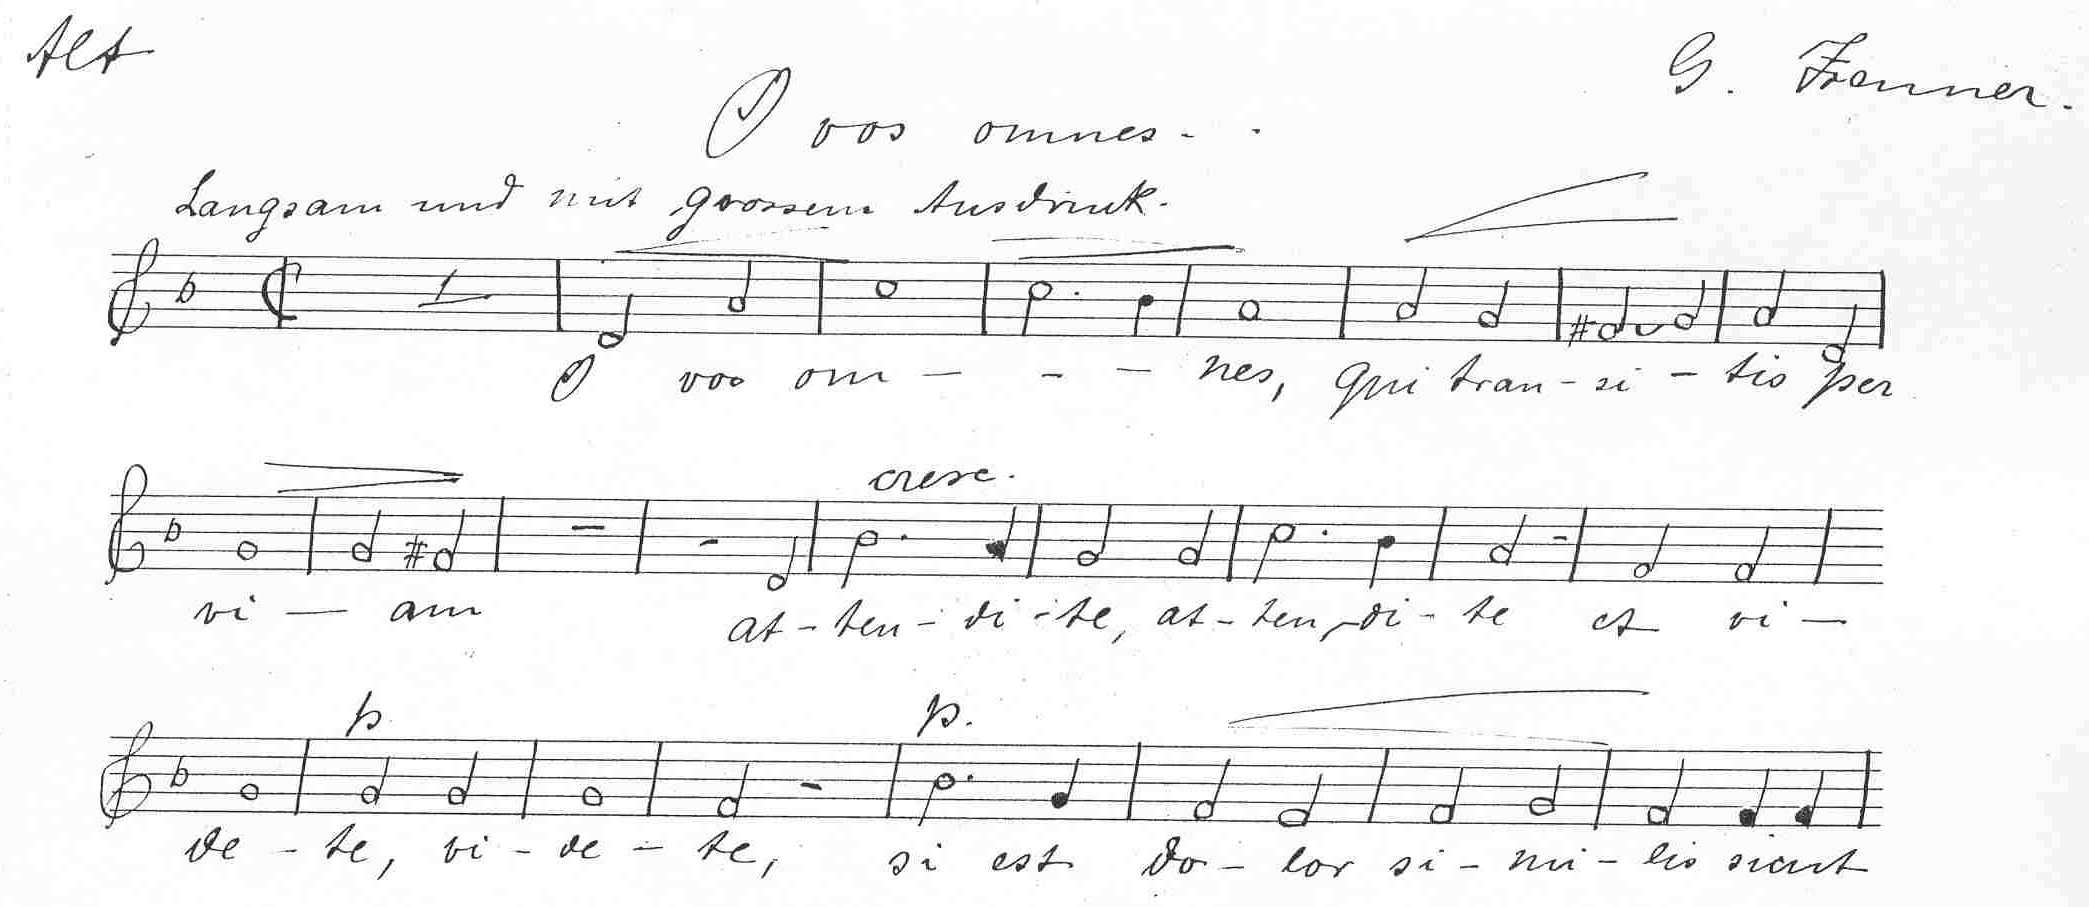 Alt
G. Zenner.
O vos omnes - .
Langsam und mit grossem Ausdruck.
1
O vos om - - - nes, Qui tran - si - tis per
cresc.
vi - am at - ten - di - te, at - ten - di - te et vi -
p p.
de - te, vi - de - te, si est do - lor si - mi - lis sicut